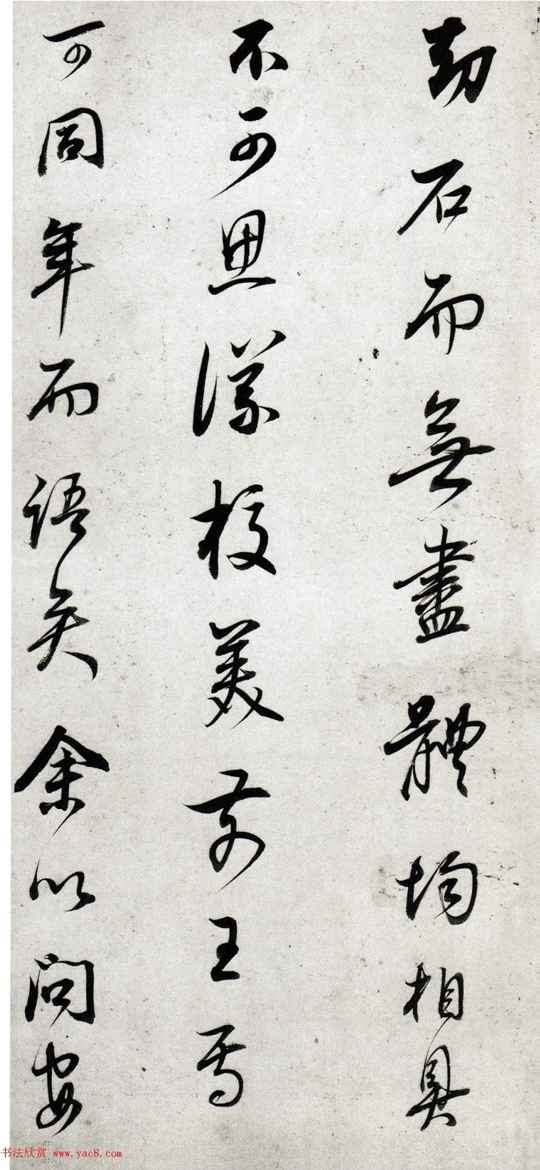 劫石而無盡體均相具
不可思議校美前王焉
可同年而語矣余以問安
书法欣赏 www.yac8.com